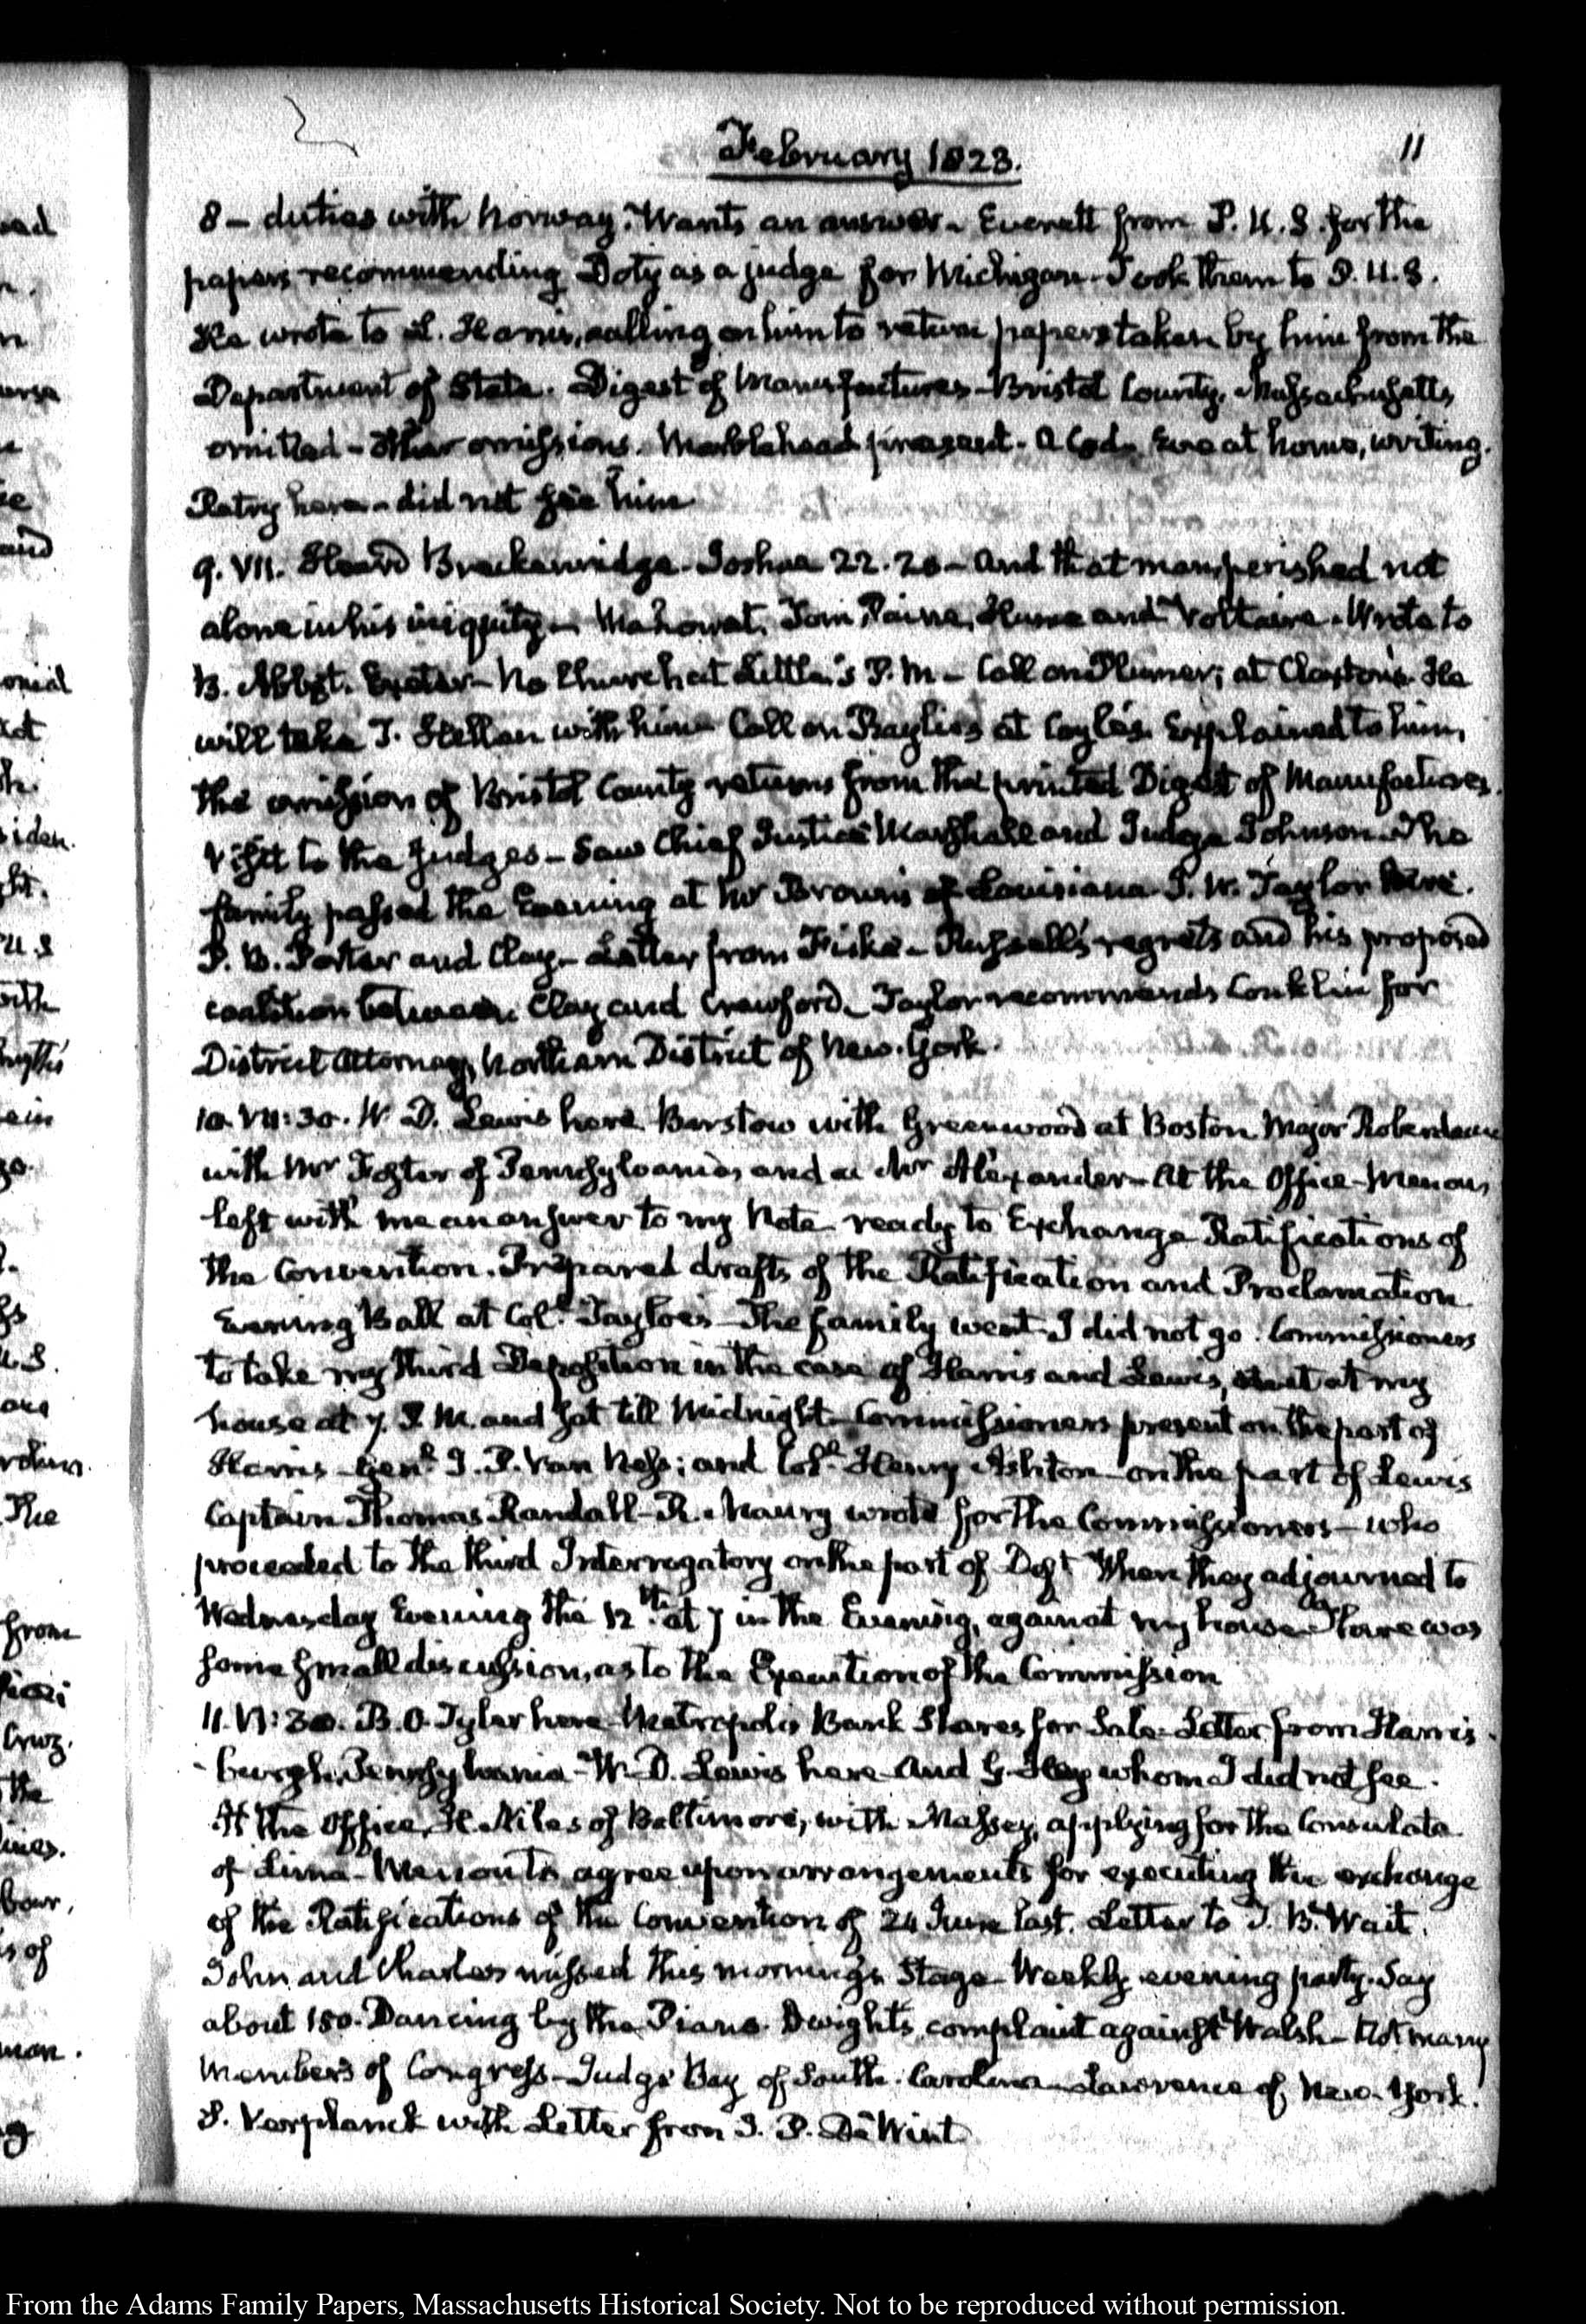 February 1823.
11
8 – duties with Norway. Wants an answer – Everett from P. U. S. for the
papers recommending Doty as a judge for Michigan – Took them to P. U. S.
He wrote to L. Harris, calling on him to return papers taken by him from the
Department of State. Digest of Manufactures – Bristol County, Massachusetts
omitted – Other omissions. Marblehead present – a Cod. Eve at home, writing.
Petry here – did not see him
9. VII. Heard Breckenridge – Joshua 22. 20 – And that man perished not
alone in his iniquity – Mahomet, Tom Paine, Hume and Voltaire. Wrote to
B. Abbot. Exeter – No Church at Little's P. M – Call on Plumer; at Claxton's. He
will take T. Hellen with him – Call on Baylies at Coyle's. Explained to him,
the omission of Bristol County returns from the printed Digest of Manufactures.
Visit to the Judges – Saw Chief Justice Marshall and Judge Johnson – The
family passed the Evening at Mr Brown's of Louisiana. J. W. Taylor here.
P. B. Porter and Clay – Letter from Fiske – Russell's regrets and his proposed
coalition between Clay and Crawford – Taylor recommends Conklin for
District Attorney, Northern District of New-York.
10. VII: 30. W. D. Lewis here. Barstow with Greenwood at Boston Major Roberdeau
with Mr Foster of Pennsylvania, and a Mr Alexander – At the Office – Menou
left with me an answer to my Note – ready to Exchange Ratifications of
the Convention. Prepared drafts of the Ratification and Proclamation
Evening Ball at Coll. Tayloe's – The family went. I did not go. Commissioners
to take my third Deposition in the case of Harris and Lewis, met at my
house at 7. P. M. and sat till Midnight – Commissioners present on the part of
Harris – Genl. J. P. Van Ness; and Coll. Henry Ashton – on the part of Lewis
Captain Thomas Randall – R. Maury wrote for the Commissioners – who
proceeded to the third Interrogatory on the part of Deft When they adjourned to
Wednesday Evening the 12th. at 7 in the Evening, again at my house. There was
some small discussion, as to the Execution of the Commission
11. VI: 30. B. O. Tyler here – Metropolis Bank Shares for Sale – Letter from Harris-
burgh, Pennsylvania – W. D. Lewis here – And G. Hay whom I did not see.
At the Office, H. Niles of Baltimore, with Massey, applying for the Consulate
of Lima – Menou to agree upon arrangements for executing the exchange
of the Ratifications of the Convention of 24 June last. Letter to T. B. Wait.
John and Charles missed this morning's Stage – Weekly evening party. Say
about 150. Dancing by the Piano. Dwight's complaint against Walsh – Not many
Members of Congress – Judge Bay of South-Carolina – Lawrence of New-York.
S. Verplanck with Letter from J. P. De Wint.
From the Adams Family Papers, Massachusetts Historical Society. Not to be reproduced without permission.